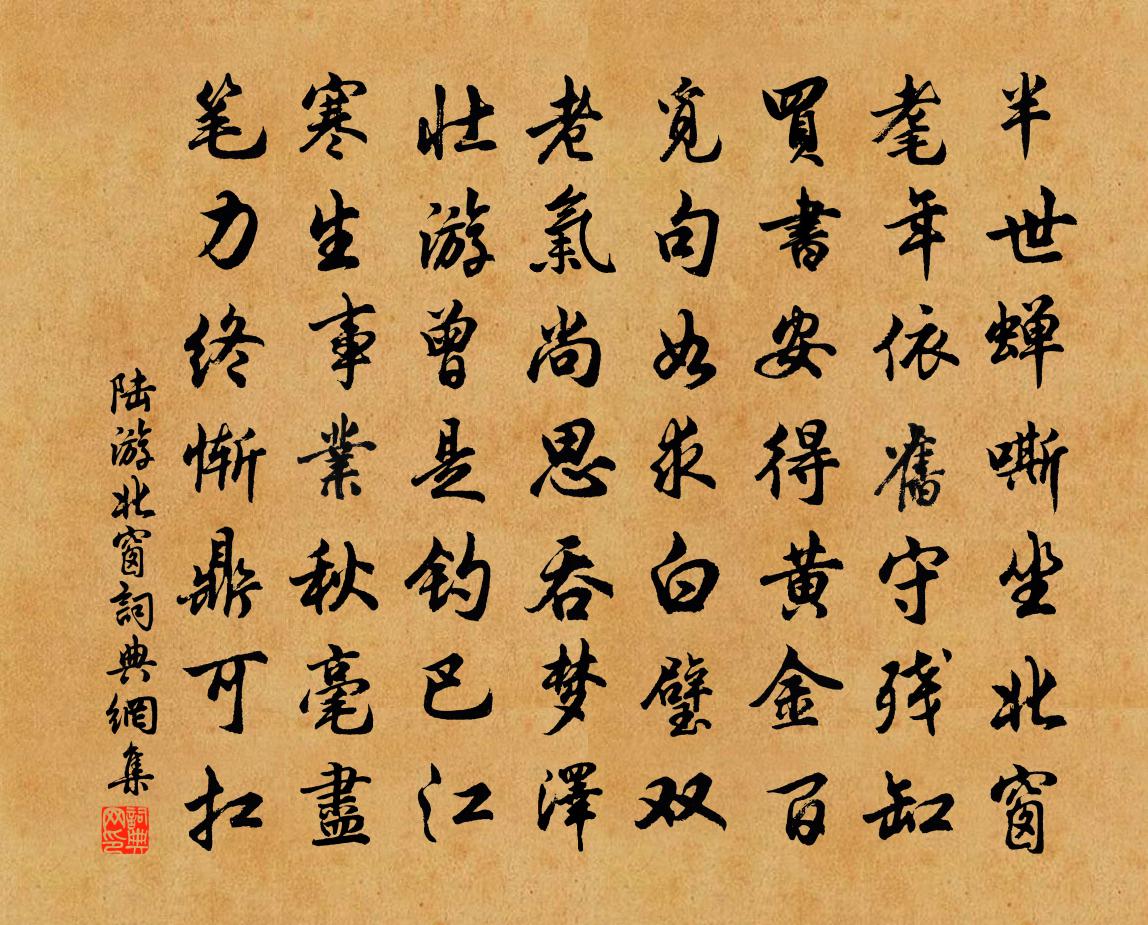 半世蝉嘶坐北窗
耄年依舊守残缸
買書安得黄金百
覓句如求白璧双
老氣尚思吞梦澤
壮游曾是钓巴江
寒生事業秋毫盡
笔力终惭鼎可扛
陆游北窗詞典網集
詞典网印